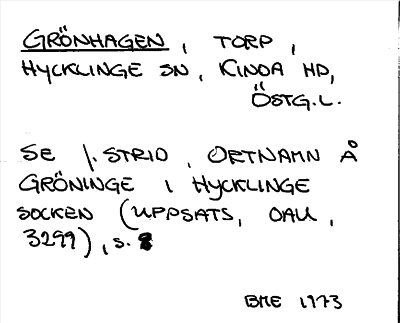 GRÖNHAGEN, TORP,
HYCKLINGE SN, KINDA HD,
ÖSTG.L.
SE J. STRID, ORTNAMN Å
GRÖNINGE I HYCKLINGE
SOCKEN (UPPSATS, OAU,
3299), S. 8
BME 1973